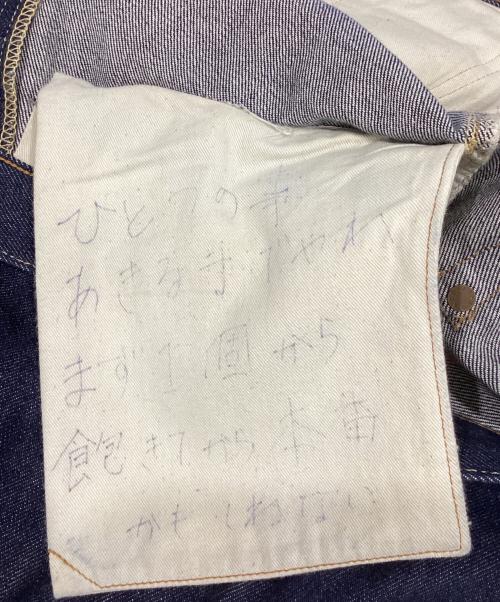 ひとつの事
あきる事でやれ
まず1個から
飽きてから本番
かもしれない